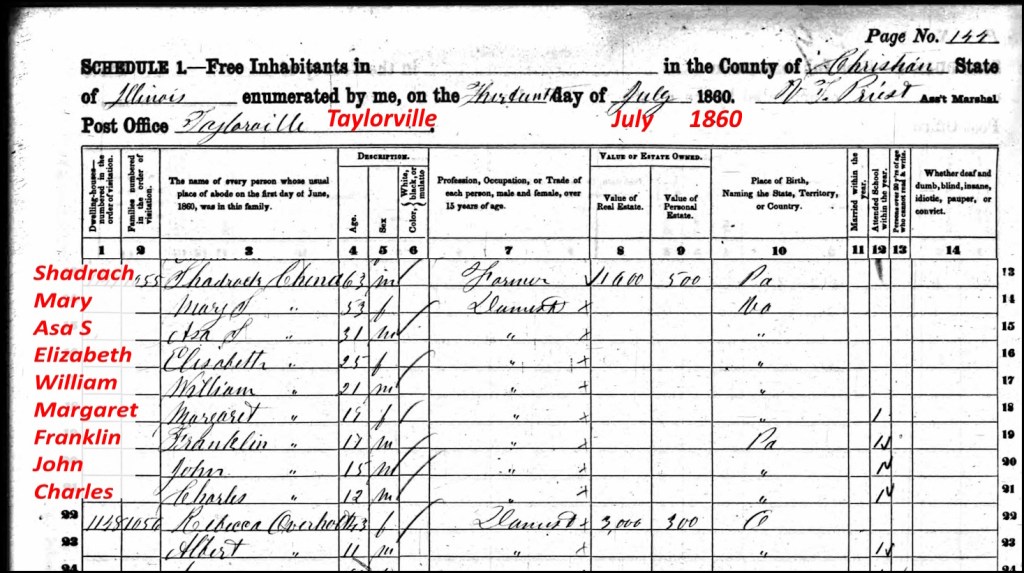 Page No. 144
SCHEDULE 1.—Free Inhabitants in in the County of Christian State
of Illinois enumerated by me, on the day of July 1860. Priest Ass't Marshal
Post Office Taylorville Taylorville July 1860
DESCRIPTION. VALUE OF ESTATE OWNED.
Dwelling-houses—numbered in the order of visitation. Families numbered in the order of visitation. The name of every person whose usual place of abode on the first day of June, 1860, was in this family. Age. Sex Color, White, black, or mulatto Profession, Occupation, or Trade of each person, male and female, over 15 years of age. Value of Real Estate. Value of Personal Estate. Place of Birth, Naming the State, Territory, or Country. Married within the year. Attended School within the year. Persons over 20 y'rs of age who cannot read & write. Whether deaf and dumb, blind, insane, idiotic, pauper, or convict.
1 2 3 4 5 6 7 8 9 10 11 12 13 14
Shadrach Shadrach 63 m Farmer 500 Pa 13
Mary Mary S " 53 f 14
Asa S Asa S " 31 m " " 15
Elizabeth Elisabeth " 25 f " " 16
William William " 21 m " " 17
Margaret Margaret " f " " 1 18
Franklin Franklin " 17 m " Pa 19
John John " 15 m " " 20
Charles Charles " 12 m " " 21
22 1148 1056 Rebecca Overholt 43 f 3,000 300 O 22
23 Albert " 11 m " " 23